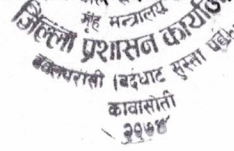 गृह मन्त्रालय
जिल्ला प्रशासन कार्या
नवलपरासी (बर्दघाट सुस्ता पूर्व)
कावासोती
२०७४